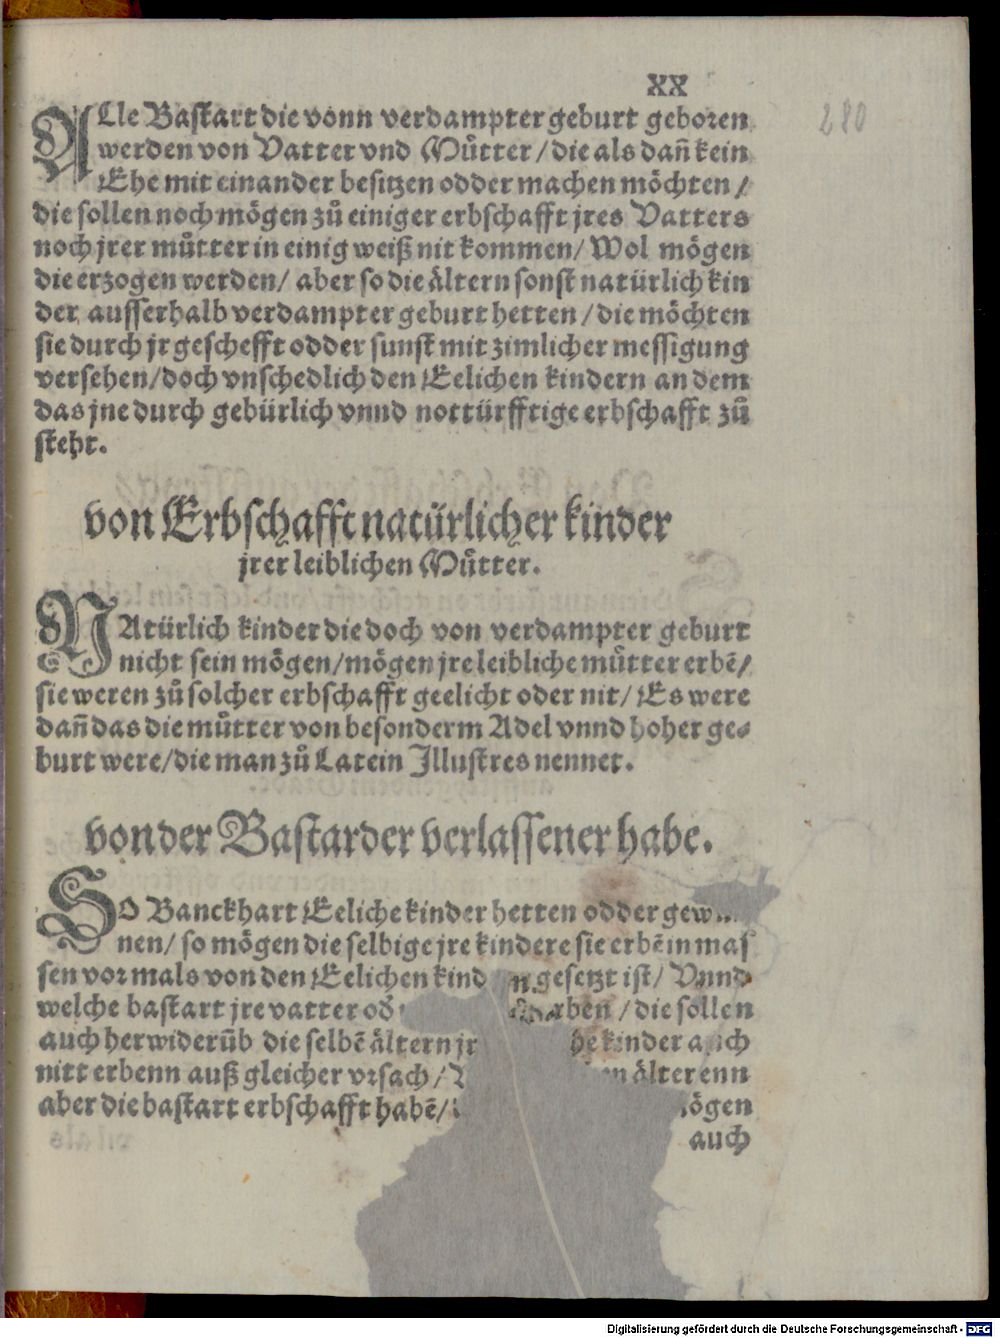 XX
280
ALle Bastart die vonn verdampter geburt geboren
werden von Vatter vnd Můtter / die als dañ kein
Ehe mit einander besitzen odder machen möchten /
die sollen noch mögen zů einiger erbschafft jres Vatters
noch jrer můtter in einig weiß nit kommen / Wol mögen
die erzogen werden / aber so die ältern sonst natürlich kin
der ausserhalb verdampter geburt hetten / die möchten
sie durch jr geschefft odder sunst mit zimlicher messigung
versehen / doch vnschedlich den Eelichen kindern an dem
das jne durch gebürlich vnnd nottürfftige erbschafft zů
steht.
von Erbschafft natürlicher kinder
jrer leiblichen Můtter.
NAtürlich kinder die doch von verdampter geburt
nicht sein mögen / mögen jre leibliche můtter erbẽ /
sie weren zů solcher erbschafft geelicht oder nit / Es were
dañ das die můtter von besonderm Adel vnnd hoher ge-
burt were / die man zů Latein Illustres nennet.
von der Bastarder verlassener habe.
SO Banckhart Eeliche kinder hetten odder
nen / so mögen die selbige jre kindere sie erbẽ in mas
sen vormals von den Eelichen kind gesetzt ist / Vnnd
welche bastart jre vatter / die sollen
auch herwiderũb die selbẽ ältern kinder auch
nitt erbenn auß gleicher vrsach / älterenn
aber die bastart erbschafft habẽ /
auch
Digitalisierung gefördert durch die Deutsche Forschungsgemeinschaft - DFG